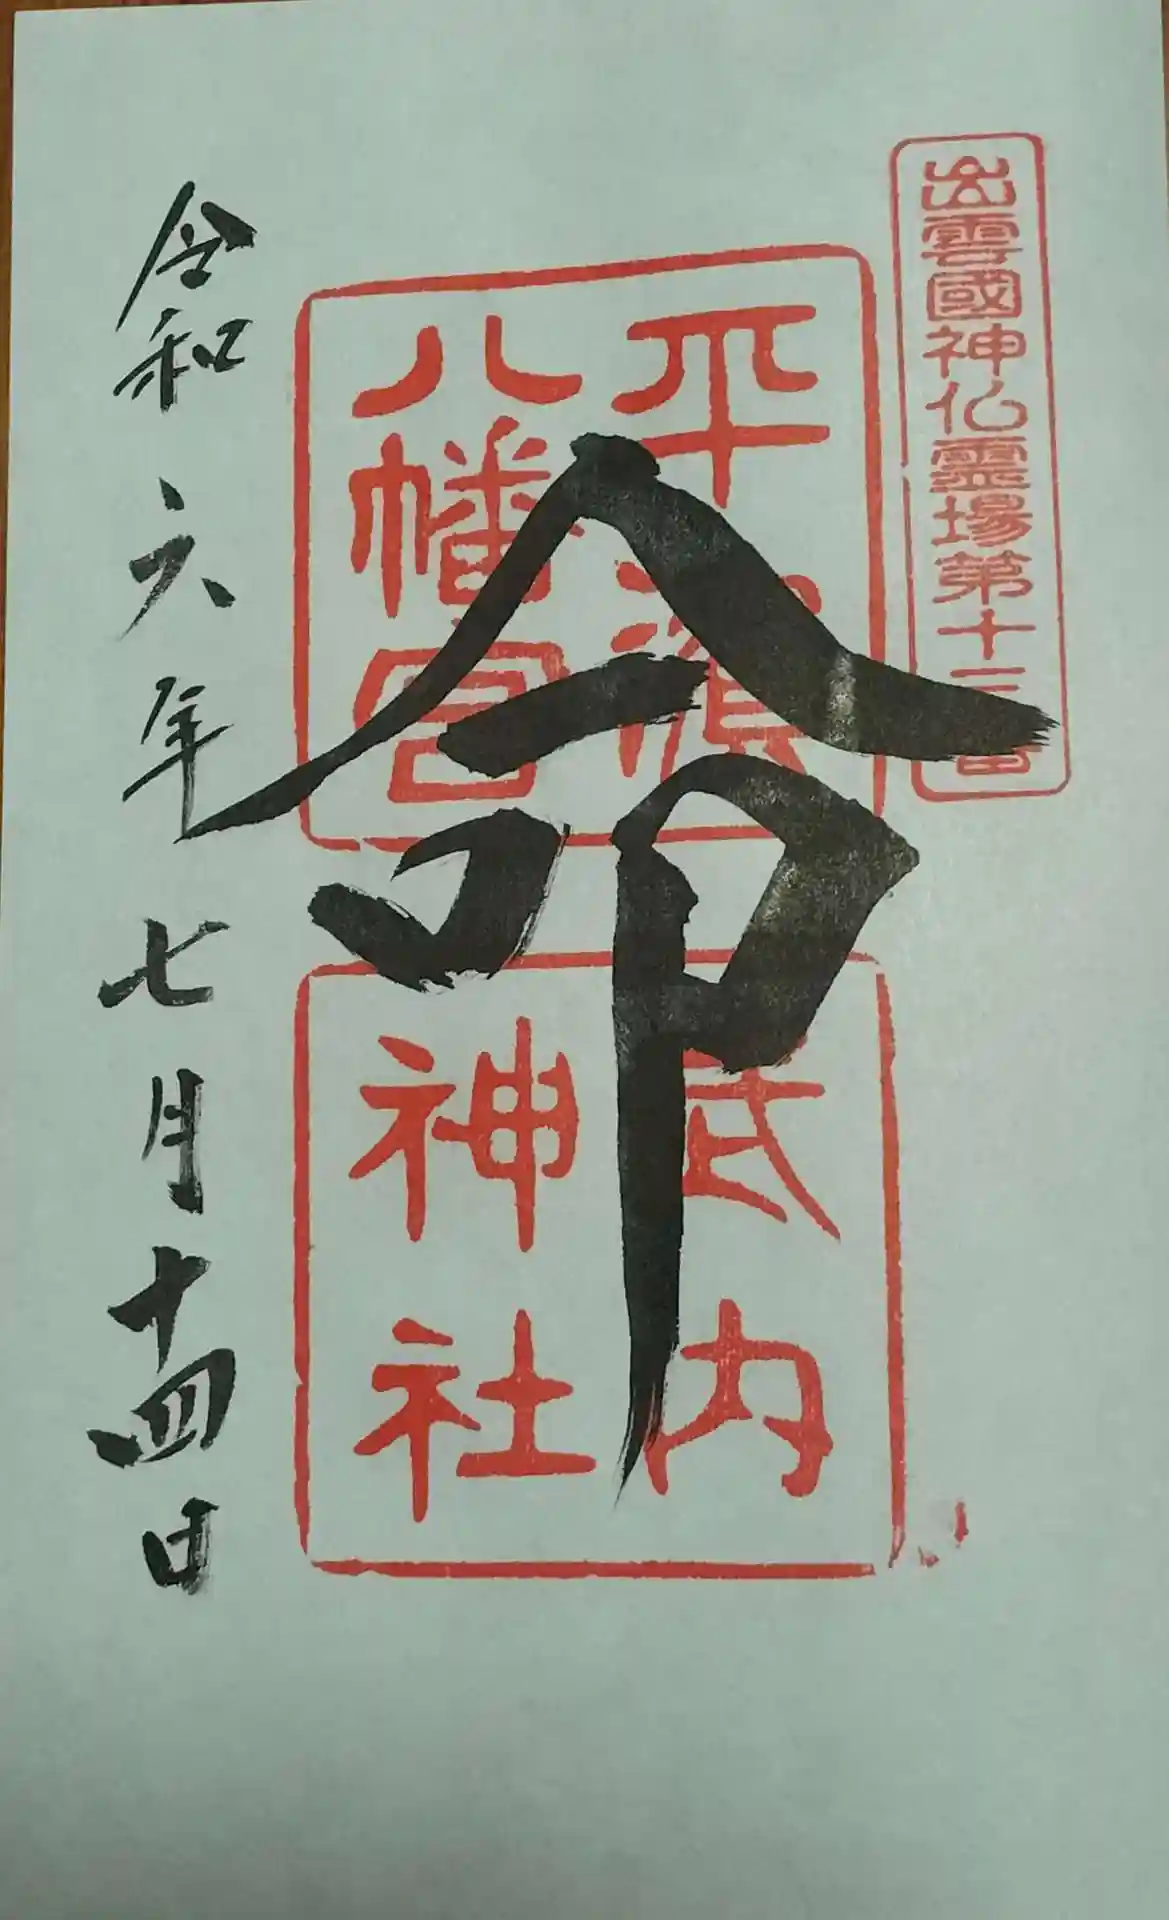 出雲國神仏霊場第十三番
平濱
八幡宮
武内
神社
命
令和六年七月十四日